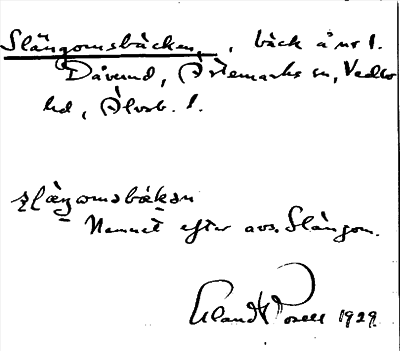 Slängomsbäcken, bäck å nr 1.
Dåverud, Ärtemarks sn, Vedbo
hd, Älvsb. l.
ʂlàŋomsbækən
Namnet efter avs. Slängom.
Erland Rosell 1929